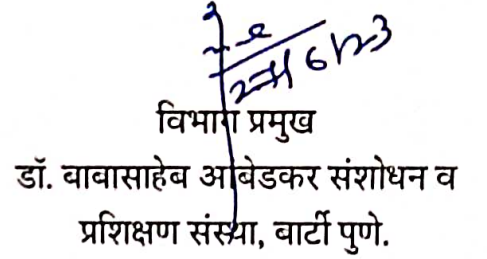 विभाग प्रमुख
डॉ. बाबासाहेब आंबेडकर संशोधन व
प्रशिक्षण संस्था, बार्टी पुणे.